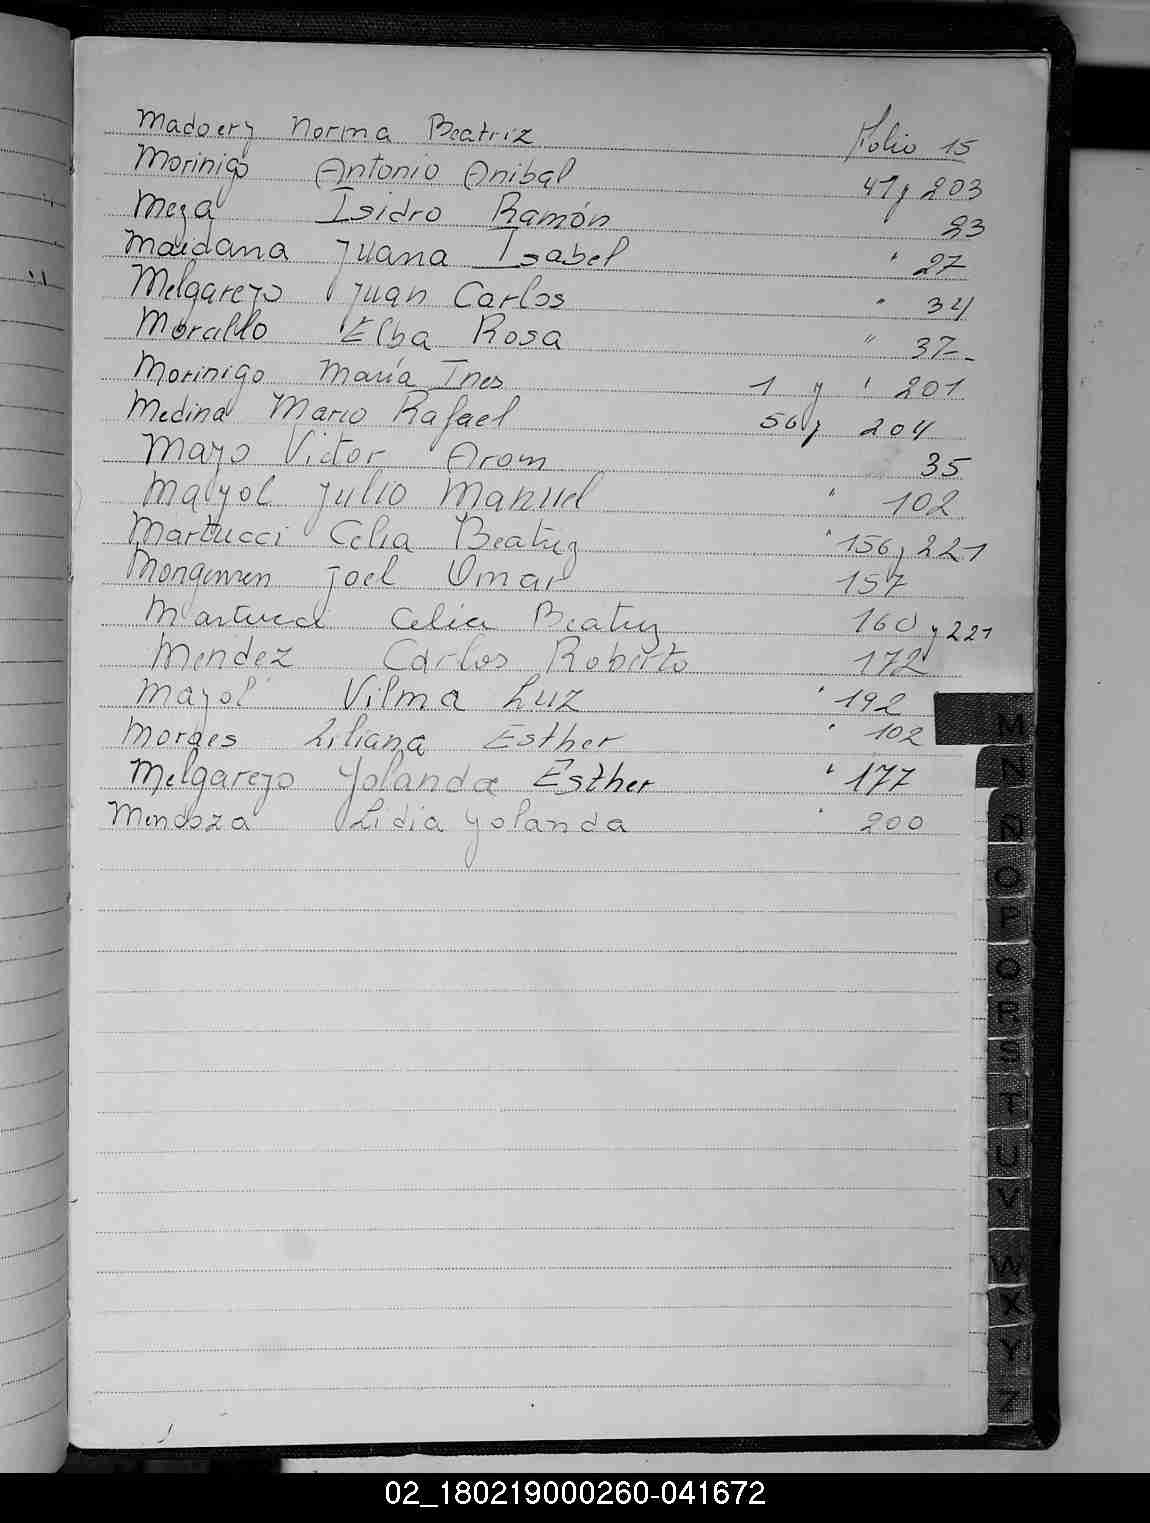 Madoery Norma Beatriz Folio 15
Morinigo Antonio Anibal 47 y 203
Meza Isidro Ramón 23
Maidana Juana Isabel " 27
Melgarejo Juan Carlos " 34
Elba Rosa " 37-
Morinigo María Ines 1 y " 201
Medina Mario Rafael 56 y 204
Mayo Victor Arom 35
Mayol Julio Manuel " 102
Martucci Celia Beatriz " 156 y 221
Joel Omar 157
Martucci Celia Beatriz 160 y 221
Mendez Carlos Roberto 172
Mayol Vilma Luz " 192
Moraes Liliana Esther " 102
Melgarejo Yolanda Esther " 177
Mendoza Lidia Yolanda " 200
M
N
Ñ
O
P
Q
R
S
T
U
V
W
X
Y
Z
02_180219000260-041672